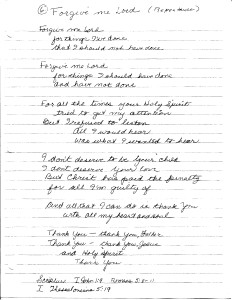 ⑥ Forgive me Lord (Repentance)
Forgive me Lord
for things I've done
that I should not have done
Forgive me Lord
for things I should have done
and have not done
For all the times your Holy Spirit
tried to get my attention
But I refused to listen
All I would hear
was what I wanted to hear
I don't deserve to be your child
I don't deserve your love
But Christ has paid the penalty
for all I'm guilty of
And all that I can do is thank you
with all my heart and soul
Thank you - thank you, Father
Thank you - thank you, Jesus
and Holy Spirit
Thank you
Scripture I John 1:9 Romans 5:8-11
I Thessalonians 5:19